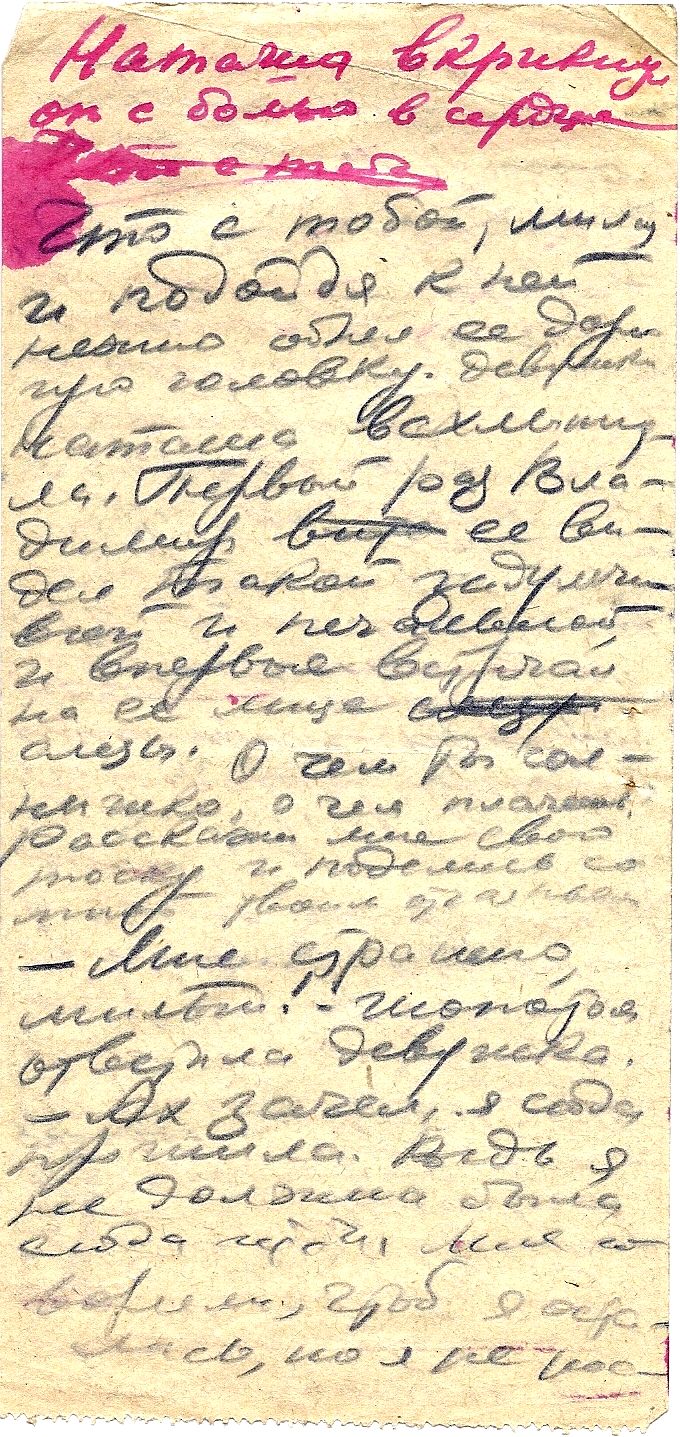 Наташа вскрикнул
он с болью в сердце
Что с тобой
Что с тобой, милая
и подойдя к ней
нежно обнял ее доро
гую головку. Девушка
Наташа всхлипну-
ла. Первый раз Вла-
димир ее ви-
дел такой задумчи
вой и печальной
и впервые встречай
на ее лице
слезы. О чем ты сол-
нышко, о чем плачешь.
Расскажи мне свою
тоску и поделись со
мной твоим
— Мне страшно,
милый. - шопотом
ответила девушка.
— Ах зачем, я сюда
пришла. Ведь я
не должна была
сюда идти, мне го
ворили, чтоб я оста-
лась, но я не пос-